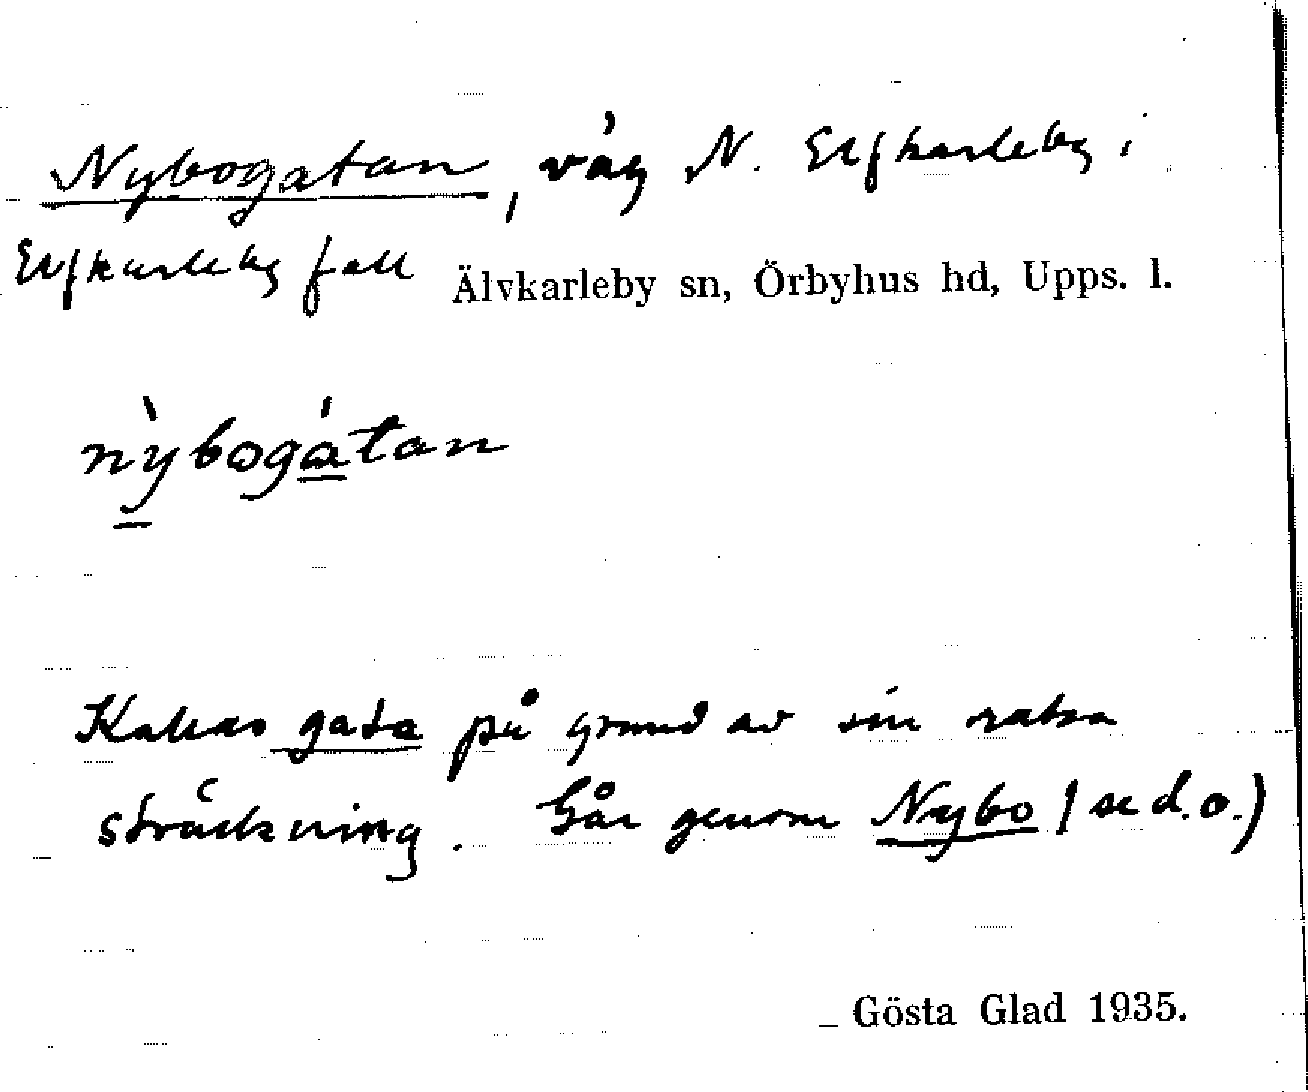 Nybogatan, väg N. Elfkarleby i
Elfkarleby fall Älvkarleby sn, Örbyhus hd, Upps. l.
nỳbogátan
Kallas gata på grund av sin raka
sträckning. Går genom Nybo (se d.o.)
Gösta Glad 1935.